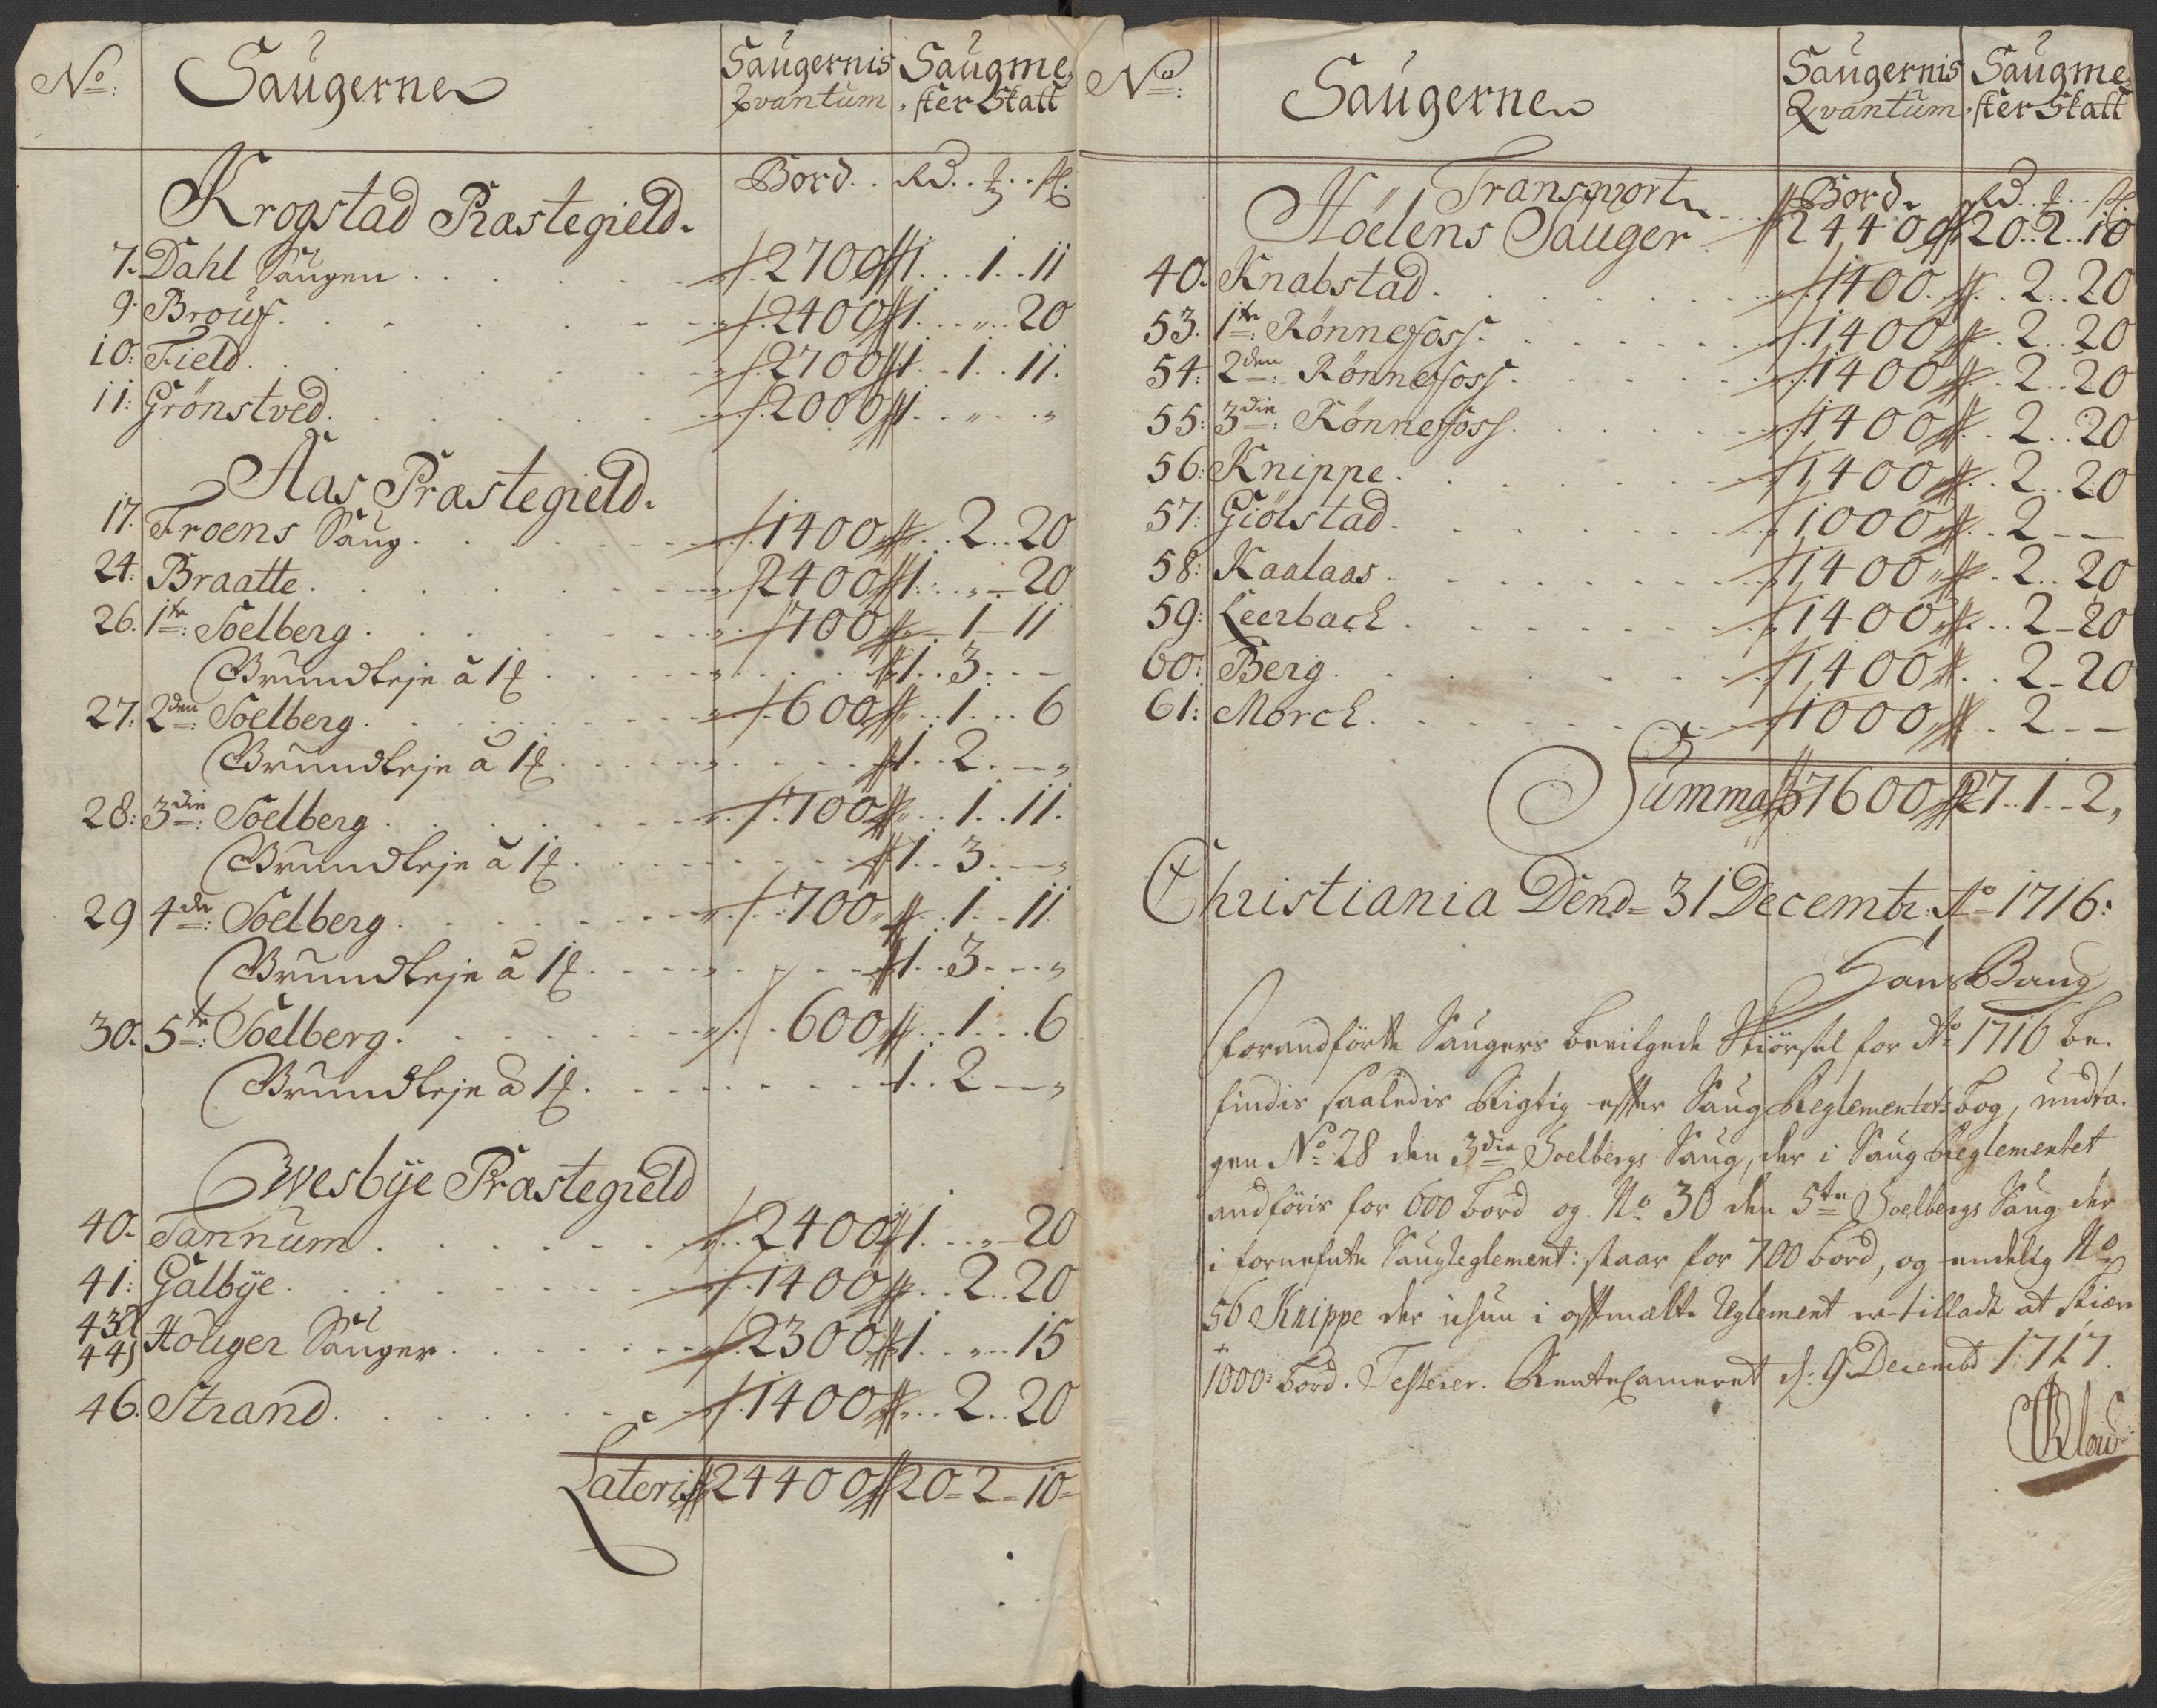 No: Saugerne Saugernis Qvantum Saugme,ster Skatt
Krogstad Præstegield. Bord.. Rd.. ƶ.. ß.
7. Dahl Saugen . . . 2700 1. . . 1. . 11
9. Brouf. . . . 2400 1. . . „. . 20
10: Field. . . . 2700 1. . 1. . 11.
11: Grönstved. . . . 2000 1. . „. . „
Aas Præstegield.
17. Froens Saug. . . . 1400 . . 2. . 20
24: Braatte. . . . 2400 1. . „ – 20
26. 1te: Soelberg. . . . 700 – 1 – 11
Grundleje à 1 ƶ . . . 1. . 3. . –
27: 2den: Soelberg. . . . 600 . . 1. . . 6
Grundleje à 1 ƶ. . . . 1. . 2. –„
28: 3die: Soelberg. . . . 700 . . 1. . 11.
Grundleje à 1 ƶ. . . . 1. . 3. –„
29 4de: Soelberg. . . . 700 . . 1. . 11
Grundleje à 1 ƶ. . . . 1. . 3. . –„
30. 5te: Soelberg. . . . 600 . . 1. . . 6
Grundleje à 1 ƶ. . . . 1. . 2 – –„
Wesbye Præstegield
40. Sannum. . . . 2400 1. . „ – 20
41: Galbye. . . . 1400 . . 2. . 20
43 44) Höliger Sauger. . . . 2300 1. . „. . 15
46. Strand. . . . 1400 . . 2. . 20
Lateris 24400 20 = 2 = 10 =
No: Saugerne Saugernis Qvantum Saugme,ster Skatt
Transport Bord. Rd.. ƶ.. ß.
Höelens Sauger 24400 20. . 2. . 10
40. Knabstad. . . . 1400. . . 2. . 20
53. 1te: Rönnefoss. . . . 1400 . . 2. . 20
54: 2den: Rönnefoss. . . . 1400 . . 2. . 20
55: 3die: Rönnefoss. . . . 1400 . . 2. . 20
56: Knippe. . . . 1400 . . 2. . 20
57: Giölstad. . . . 1000 . . 2 – –
58: Kaalaas. . . . 1400 . . 2. . 20
59: Leerbach. . . . 1400 . . 2 – 20
60: Berg. . . . 1400 . . 2 – 20
61: Morch. . . . 1000 . . 2 – –
Summa 37600 27. . 1. – 2„
Christiania Dend = 31 Decembr: Ao 1716:
Hans Baug
Forandförte Saugers bevilgede Skiörsel for Ao 1716 be-
findis saaledis Rigtig effter Saug Reglementets bog, undta-
gen No: 28 den 3die Soelbergs Saug, der i Saug Reglementet
andföris for 600 bord og No: 30 den 5te Soelbergs Saug der
i bemelte Saugreglement: staar for 700 bord, og endelig No
56 Knippe der ichun i offtmælte Reglement er tilladt at skiære
1000 bord. Testerer. RenteCameret d: 9 Decembr 1717.